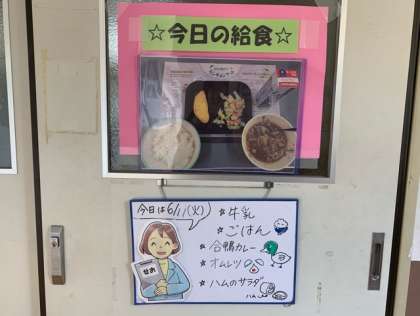 ☆今日の給食☆
今日は6/11(火)
☆牛乳
☆ごはん
☆合鴨カレー
☆オムレツ
☆ハムのサラダ